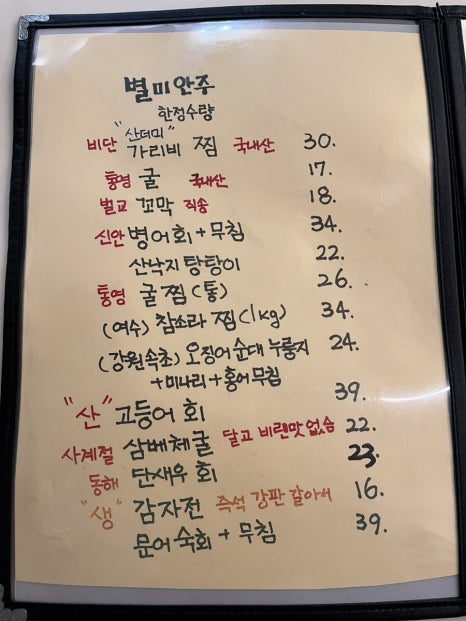 별미안주
한정수량
"산더미"
비단 가리비 찜 국내산 30.
통영 굴 국내산 17.
벌교 꼬막 직송 18.
신안 병어회 + 무침 34.
산낙지 탕탕이 22.
통영 굴찜 (통) 26.
(여수) 참소라 찜 (1kg) 34.
(강원속초) 오징어 순대 누룽지 24.
+ 미나리 + 홍어무침
"산" 고등어 회 39.
사계절 삼배체굴 달고 비린맛 없슴 22.
동해 단새우 회 23.
"생" 감자전 즉석 강판 갈아서 16.
문어 숙회 + 무침 39.